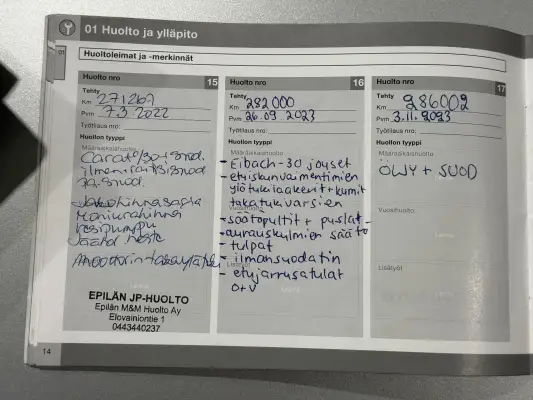 01 Huolto ja ylläpito
Huoltoleimat ja -merkinnät
01
Huolto nro 15
Tehty
Km 271267
Pvm 7.3.2022
Työtilaus nro:
Huollon tyyppi
Määräaikaishuolto
Jakohihnasarja
Moniurahihna
Vesipumppu
Jäähd neste
EPILÄN JP-HUOLTO
Epilän M&M Huolto Ay
Elovainiontie 1
0443440237
14
Huolto nro 16
Tehty
Km 282000
Pvm 26.09.2023
Työtilaus nro:
Huollon tyyppi
Määräaikaishuolto
- Eibach -30 jouset
- etuiskunvaimentimien
ylätukilaakerit + kumit
takatukivarsien
Vuosihuolto
- säätöpultit + puslat
- aurauskulmien säätö
- tulpat
- ilmansuodatin
Lisätyöt
- etujarrusatulat
Leima
Huolto nro 17
Tehty
Km 286002
Pvm 3.11.2023
Työtilaus nro:
Huollon tyyppi
Määräaikaishuolto
ÖLJY + SUOD
Vuosihuolto:
Leima
Lisätyöt
Leima